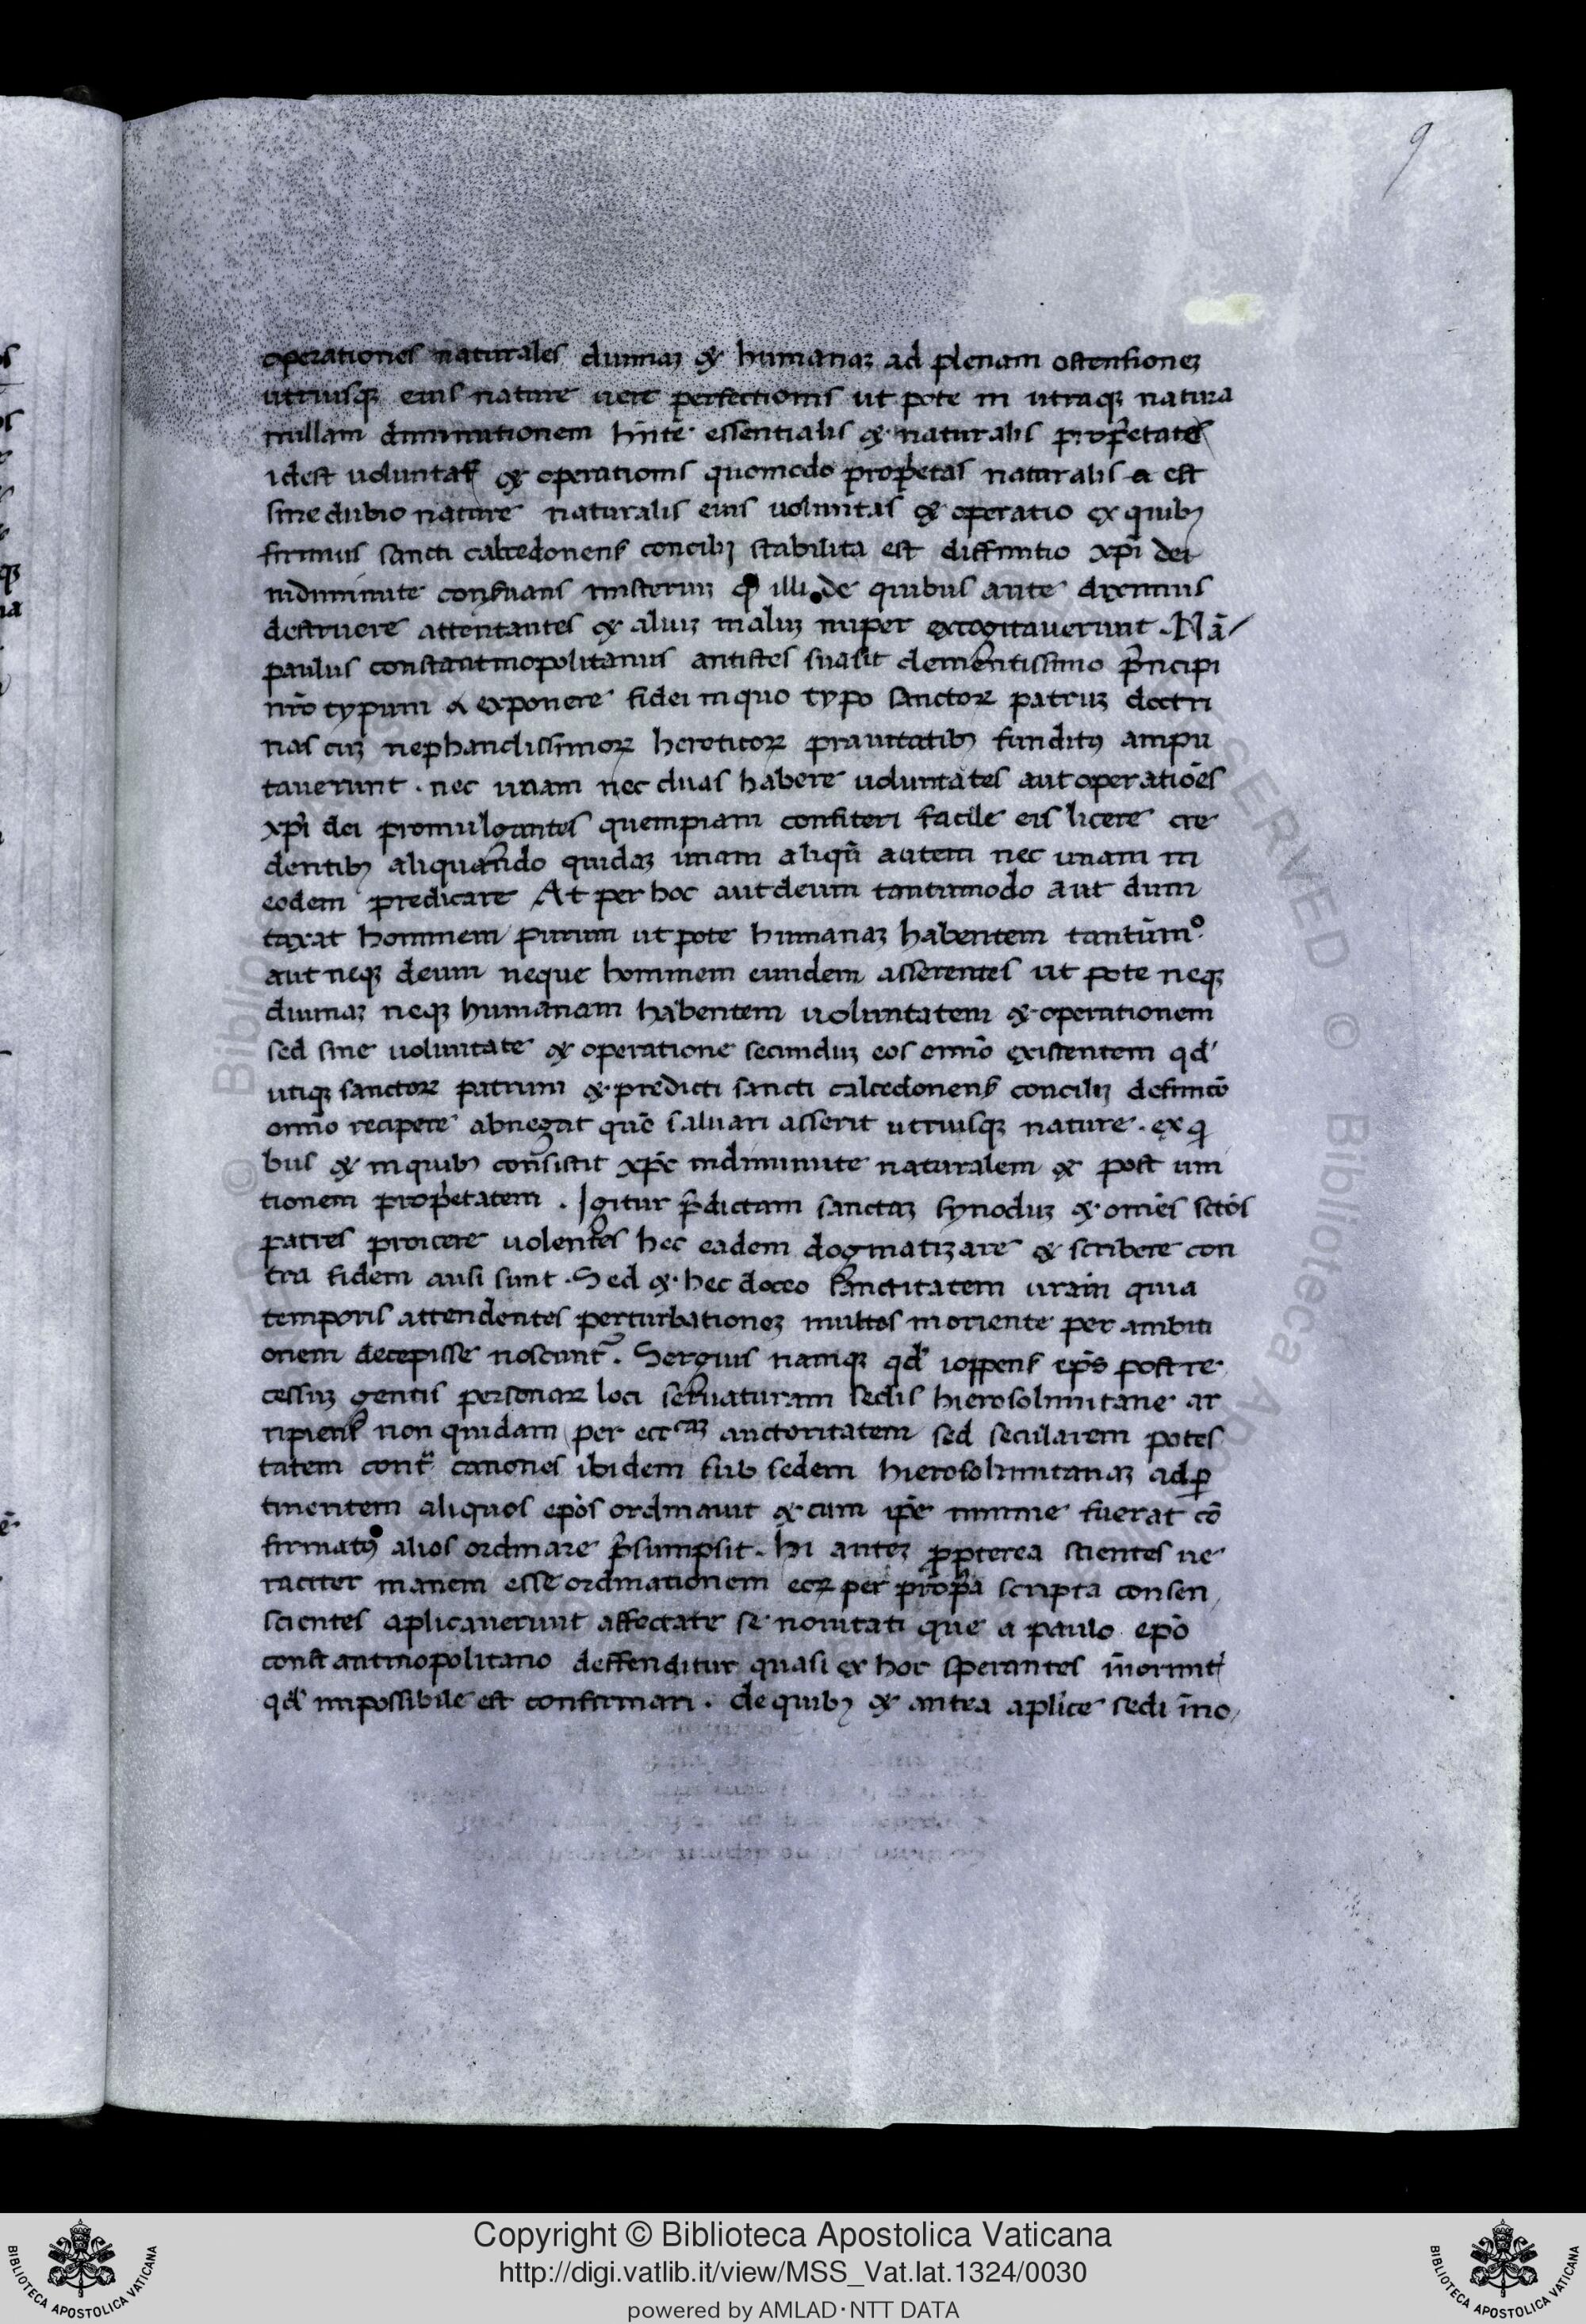 9
operationes naturales diuinaꝫ & humanaꝫ ad plenam ostensioneꝫ
utriusqꝫ eius nature uere perfectionis ut pote in utraqꝫ natura
nullam diminutionem hn̄te essentialis & naturalis prop̄etates
idest uoluntat̄ & operationis quomodo prop̄etas naturalis a est
sine dubio nature naturalis eius uoluntas & operatio ex quibꝫ
firmius sancti calcedonens̄ conciliꝫ stabilita est diffinitio xp̄i dei
indiminute conseruans misteriuꝫ qd̄ illi de quibus ante diximus
destruere attentantes & aliuꝫ maluꝫ nuper excogitauerunt. Nā
paulus constantinopolitanus antistes suasit clementissimo pͥncipi
nr̄o typum exponere fidei inquo typo sanctoꝝ patruꝫ doctri
nas cuꝫ nephandissimoꝝ hereticoꝝ prauitatibꝫ funditꝰ ampu
tauerunt. nec unam nec duas habere uoluntates aut operatiōes
xp̄i dei promulgantes quempiam confiteri facile eis licere cre
dentibꝫ aliquando quidaꝫ unam aliqn̄ autem nec unam in
eodem predicare At per hoc aut deum tantumodo aut dum
taxat hominem purum ut pote humanaꝫ habentem tantūmº
aut neqꝫ deum neque hominem eundem asserentes ut pote neqꝫ
diuinaꝫ neqꝫ humanam habentem uoluntatem & operationem
sed sine uoluntate & operatione secunduꝫ eos omīo existentem qd'
utiqꝫ sanctoꝝ patrum & predicti sancti calcedonens̄ conciliꝫ definitō
omīo recipere abnegat que saluari asserit utriusqꝫ nature. ex qͥ
bus & inquibꝫ consistit xp̄c indiminute naturalem & post uni
tionem prop̄etatem. Igitur p̄dictam sanctaꝫ synoduꝫ & om̄es sctōs
patres proicere uolentes hec eadem dogmatizare & scribere con
tra fidem ausi sunt. Sed & hec doceo sanctitatem uram̄ quia
temporis attendentes perturbationeꝫ multos moriente per ambiti
onem decepisse noscunt̄. Sergius namqꝫ qd' ioppens̄ ep̄s post re
cessuꝫ gentis personaꝝ loci seruaturam sedis hierosolimitane ar
ripiens̄ non quidam per eccᶜᵃꝫ auctoritatem sed secularem potes
tatem contͣ canones ibidem sub sedem hierosolimitanaꝫ adꝑ
tinentem aliquos ep̄os ordinauit & cum ip̄e minime fuerat cō
firmatꝰ alios ordinare p̄sumpsit. hi auteꝫ ꝓpterea scientes ue
raciter inanem esse ordinationem eoꝝ per propͥa scripta consen
scientes aplicauerunt affectate se nouitati que a paulo ep̄o
constantinopolitano deffenditur quasi ex hoc sperantes
qd' impossibile est confirmari. de quibꝫ & antea aplice sedi
Copyright © Biblioteca Apostolica Vaticana
http://digi.vatlib.it/view/MSS_Vat.lat.1324/0030
powered by AMLAD·NTT DATA
BIBLIOTECA APOSTOLICA VATICANA
BIBLIOTECA APOSTOLICA VATICANA